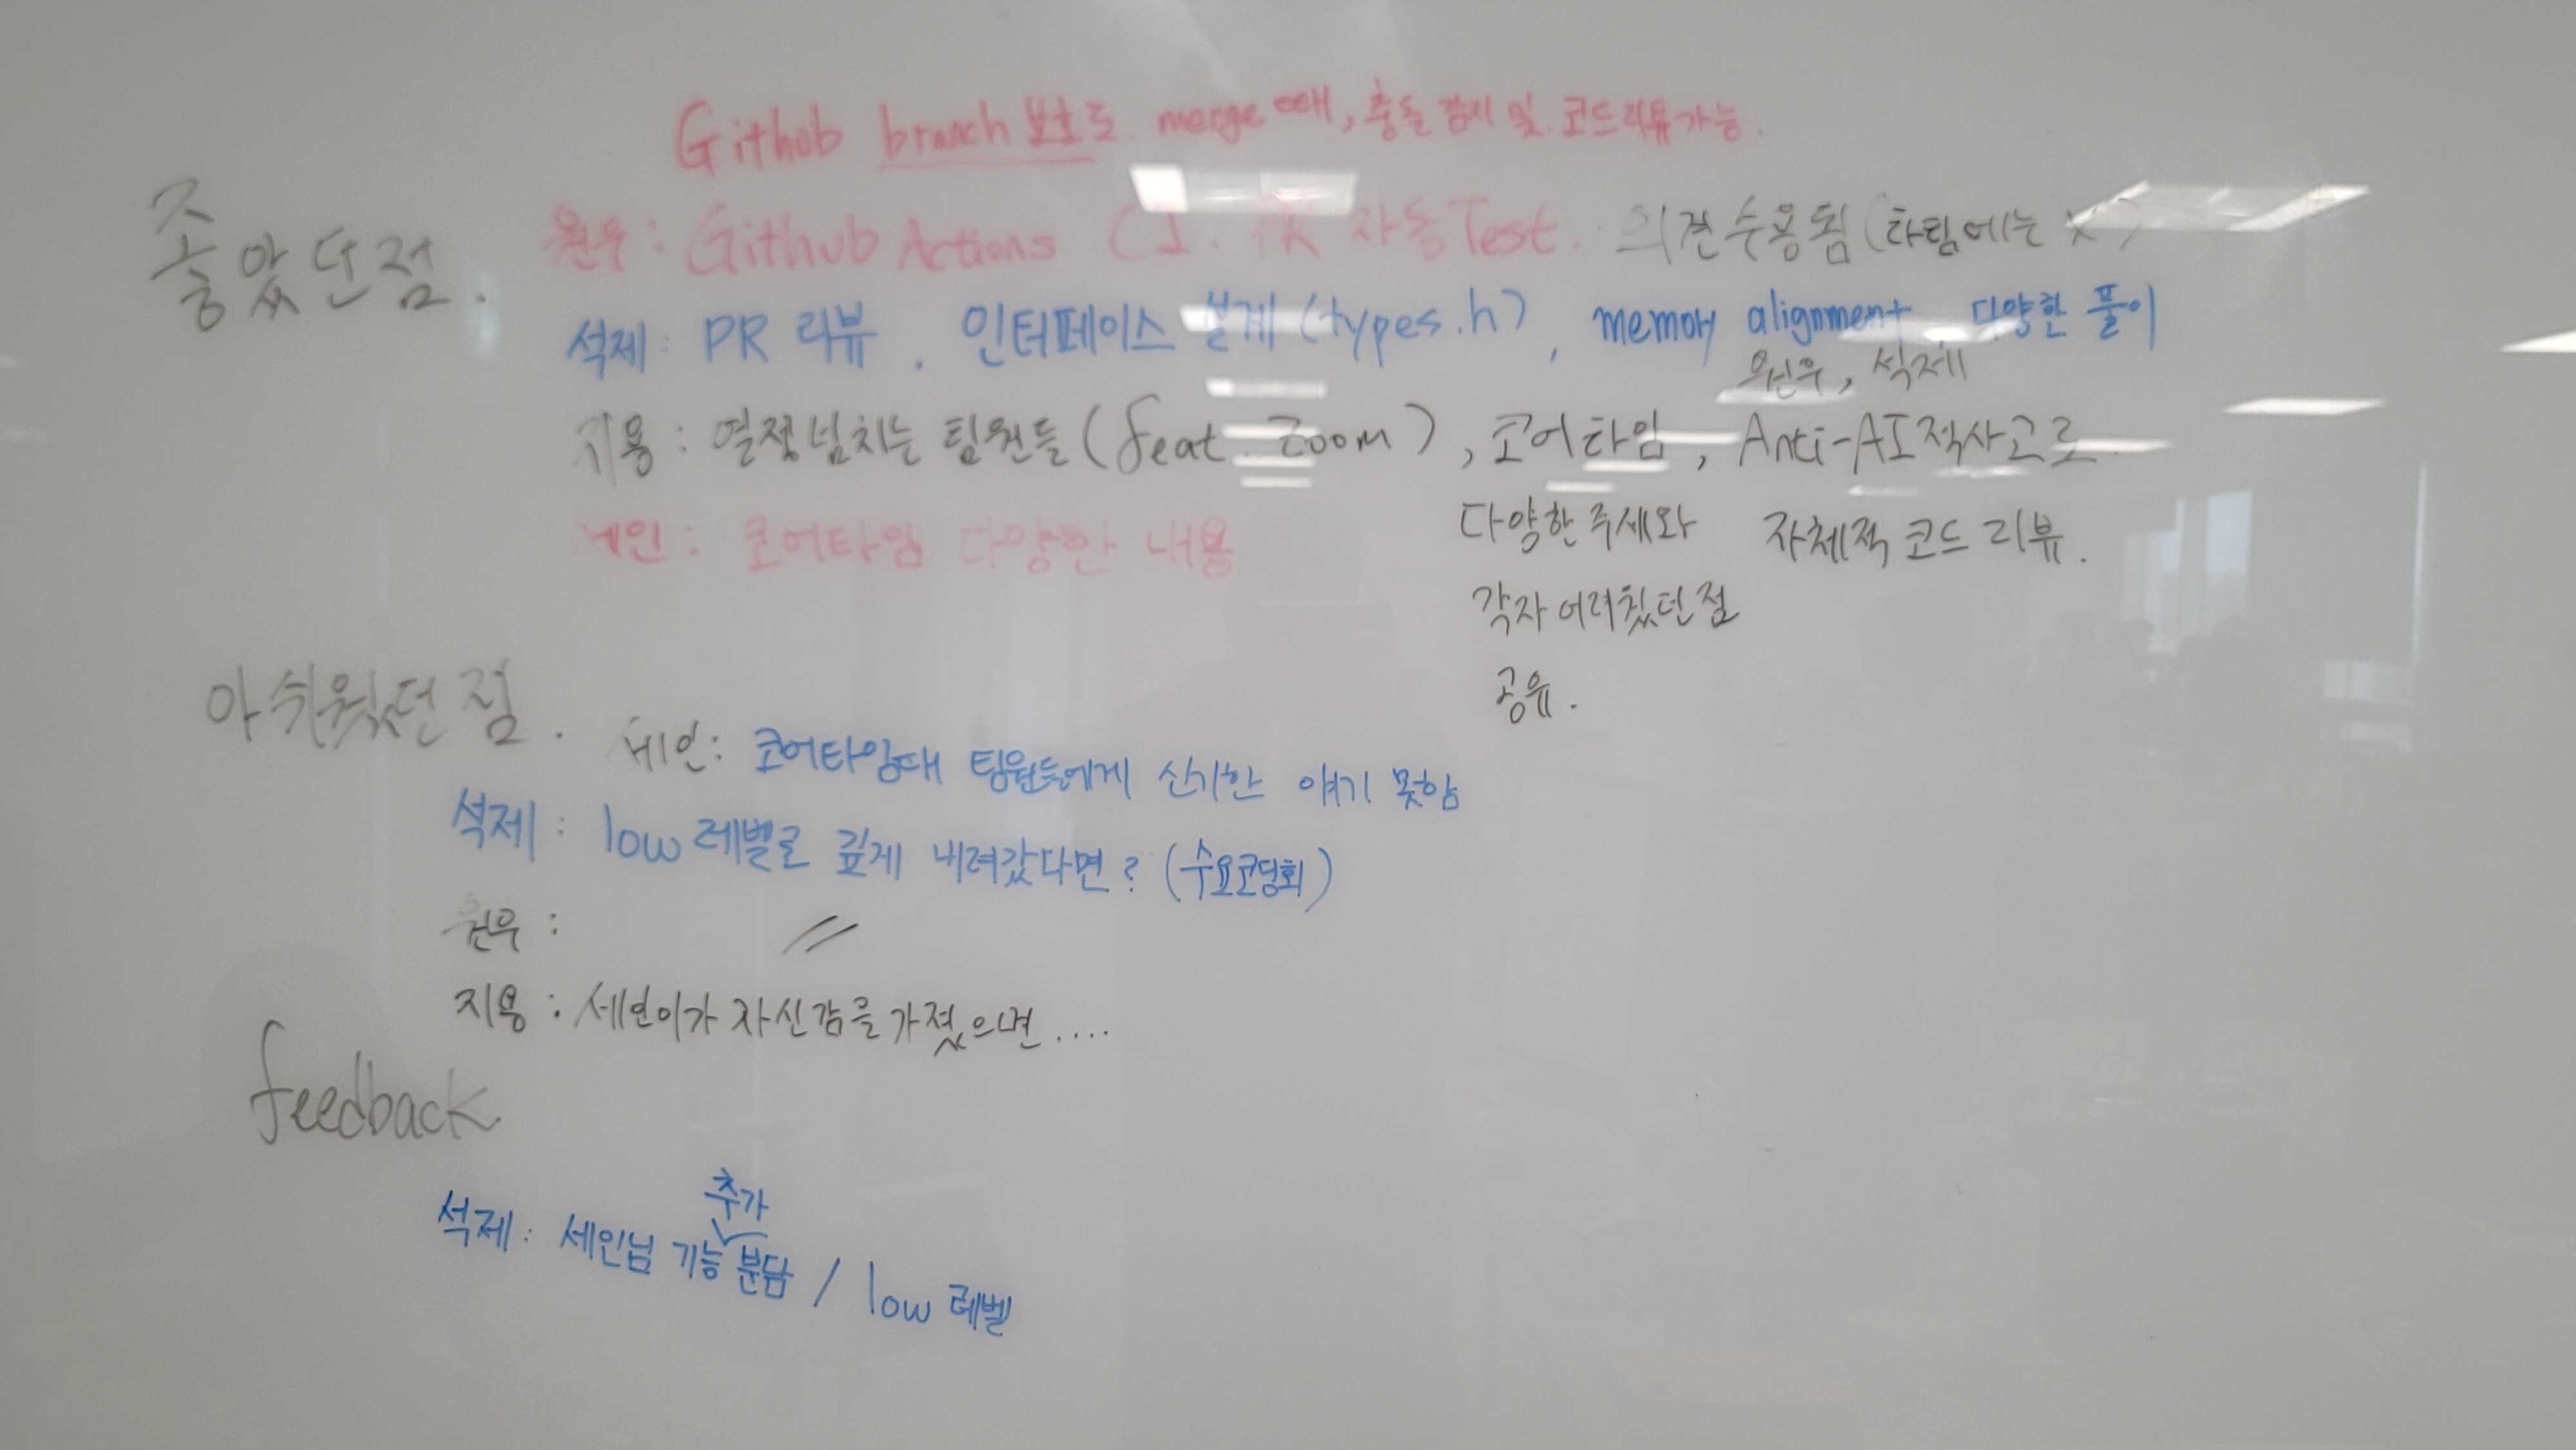 Github branch 보호로 merge 때, 충돌 감시 및 코드리뷰가능.
좋았던점.
원우: Github Actions CI. 자동Test. 의견수용됨(타팀에는 X)
석제: PR 리뷰, 인터페이스 설계(types.h), memory alignment, 다양한 풀이
원우, 석제
지용: 열정넘치는 팀원들(feat. Zoom), 코어타임, Anti-AI적사고로
다양한 주제와 자체적 코드 리뷰.
각자 어려웠던점
공유.
세인: 코어타임 다양한 내용
아쉬웠던점.
세인: 코어타임때 팀원들에게 신기한 얘기 못함
석제: low레벨로 깊게 내려갔다면? (수요코딩회)
원우: 〃
지용: 세인이가 자신감을 가졌으면....
feedback
추가
석제: 세인님 기능 분담 / low 레벨